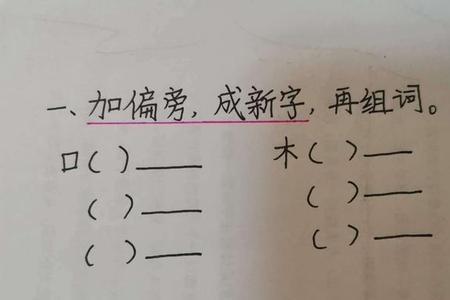 一、加偏旁，成新字，再组词。
口（ ）____ 木（ ）____
（ ）____ （ ）____
（ ）____ （ ）____